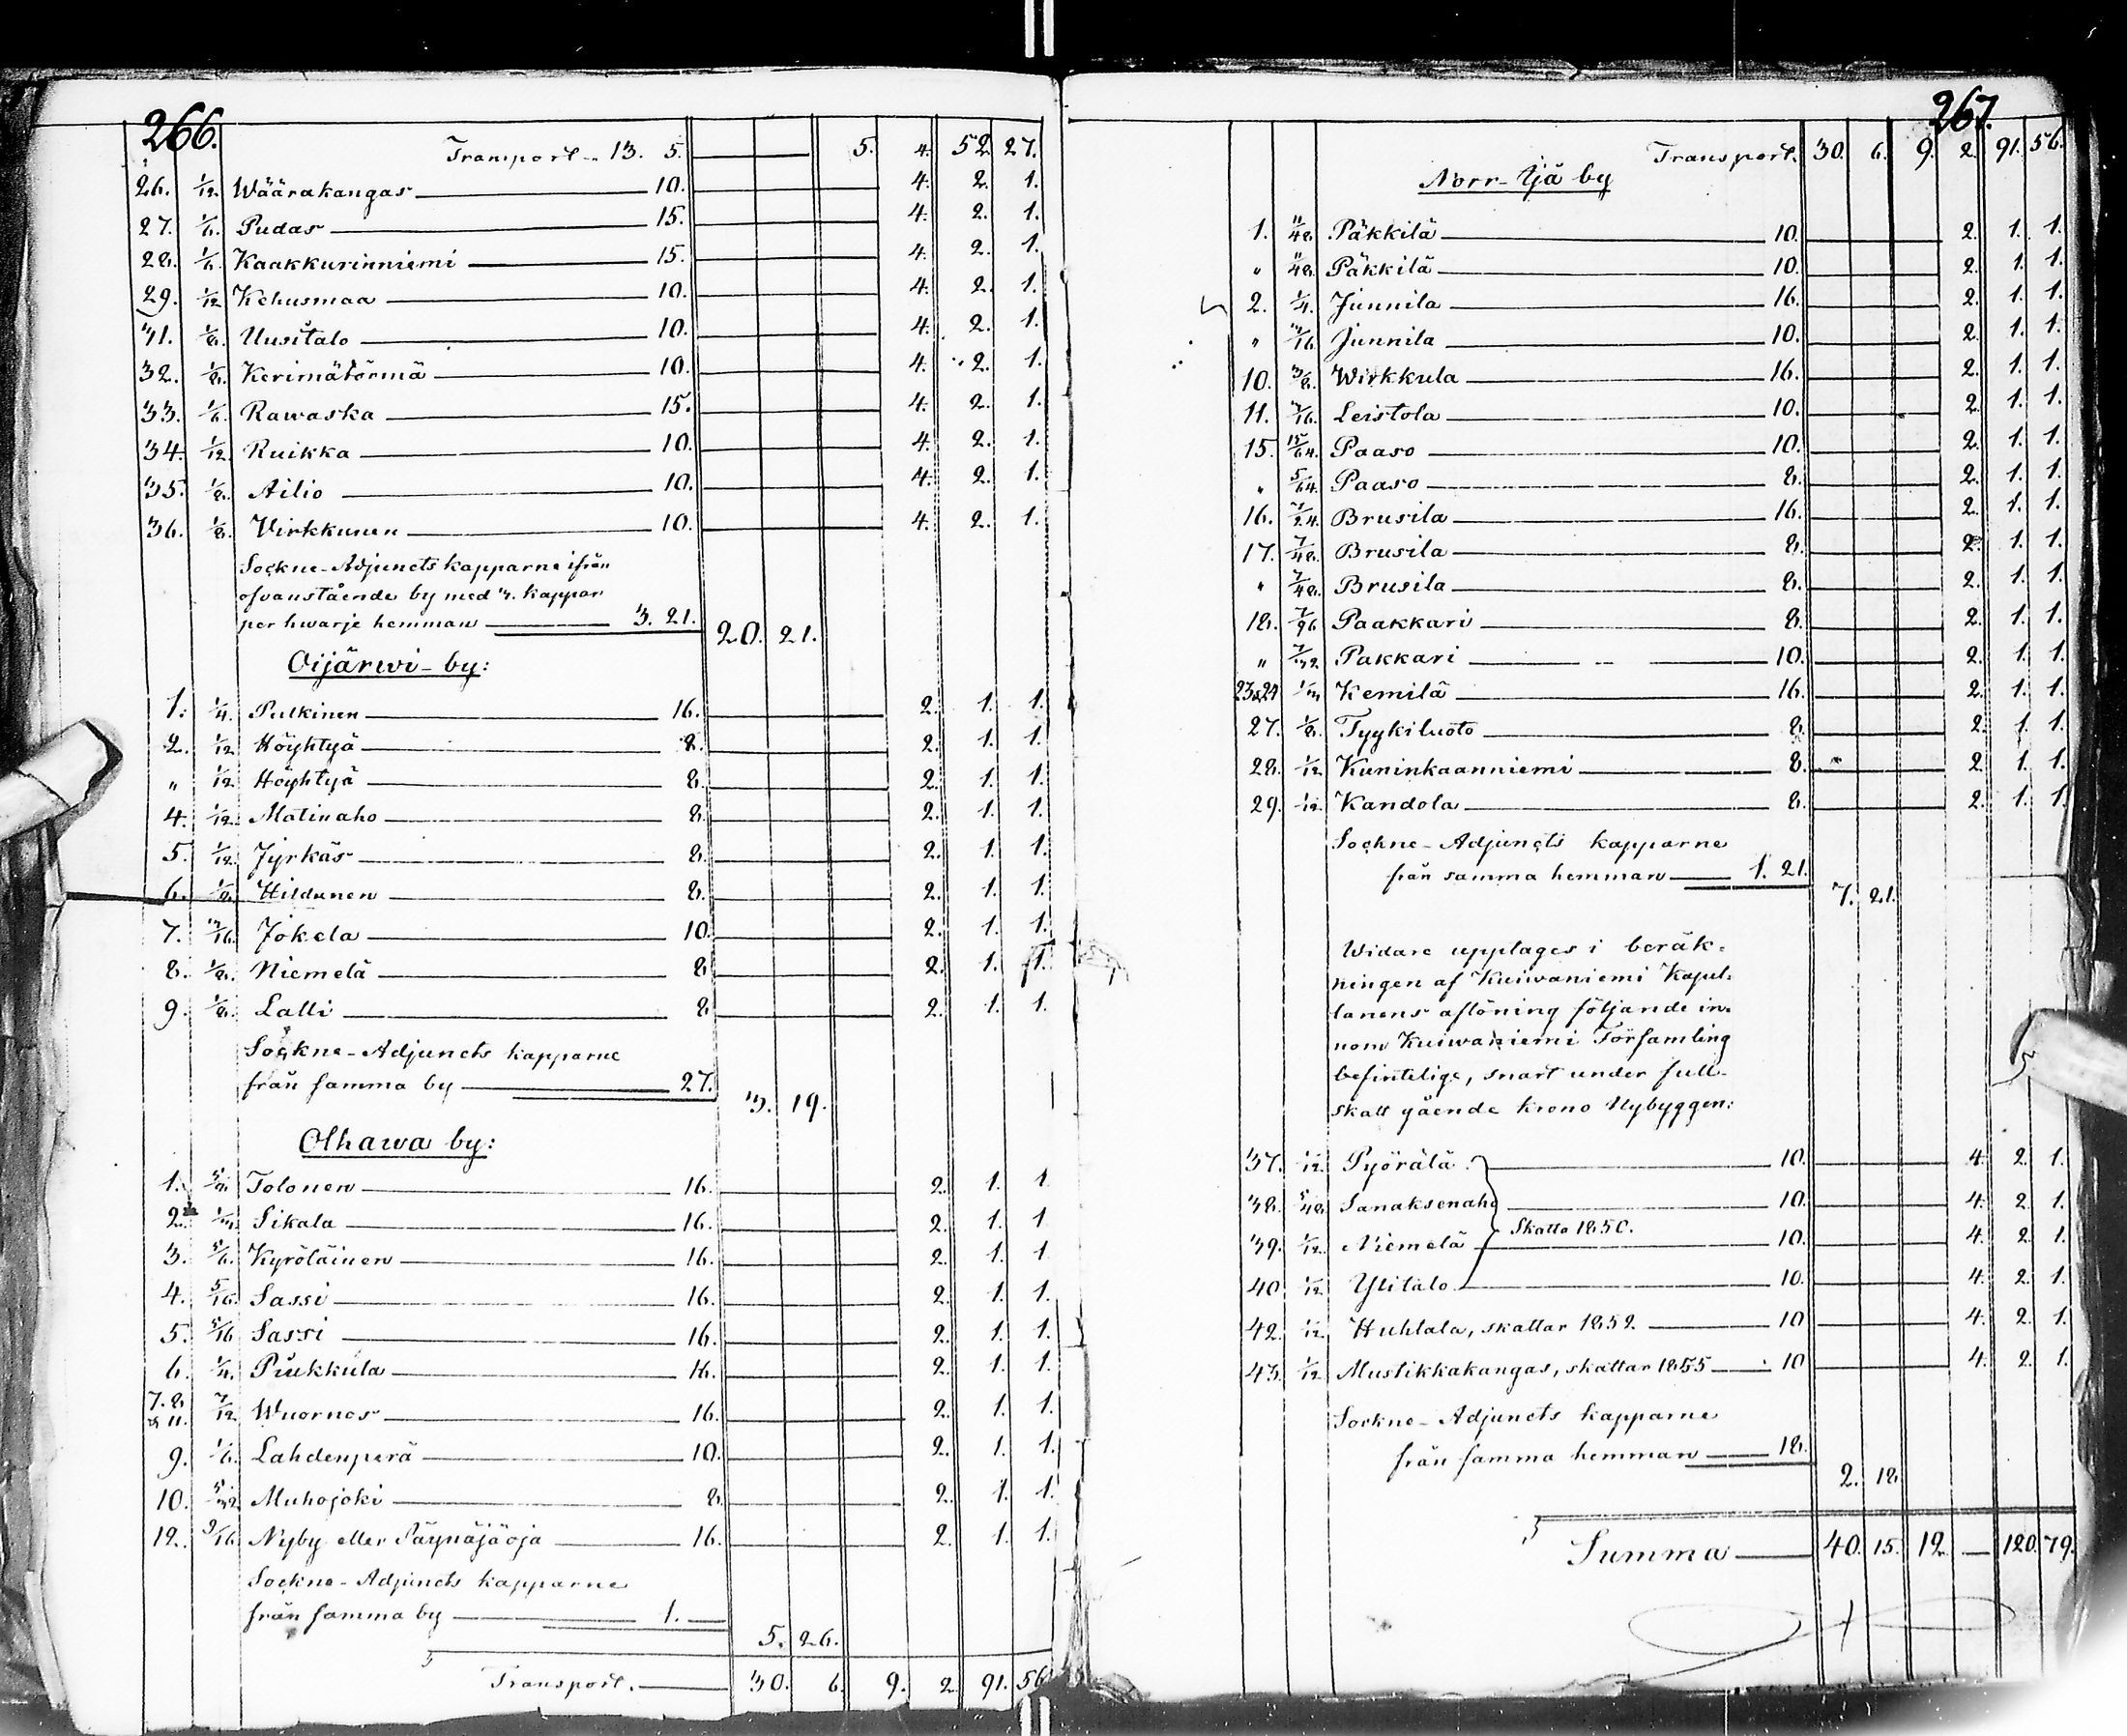 266.
Transport 13. 5. 5. 4. 52. 27.
26. 1/12. Wäärakangas 10. 4. 2. 1.
27. 1/6. Pudas 15. 4. 2. 1.
28. 1/6. Kaakkurinniemi 15. 4. 2. 1.
29. 1/12 Kehusmaa 10. 4. 2. 1.
31. 1/8. Uusitalo 10. 4. 2. 1.
32. 1/8. Kerimätörmä 10. 4. 2. 1.
33. 1/6. Rawaska 15. 4. 2. 1.
34. 1/12 Ruikka 10. 4. 2. 1.
35. 1/8. Ailio 10. 4. 2. 1.
36. 1/8. Virkkunen 10. 4. 2. 1.
Sockne-Adjuncts kapparne ifrån
ofvanstående by med 3. kappar
per hwarje hemman 3. 21. 20. 21.
Oijärwi-by:
1. 1/4. Pulkinen 16. 2. 1. 1.
2. 1/12 Höyhtyä 8. 2. 1. 1.
" 1/12 Höyhtyä 8. 2. 1. 1.
4. 1/12. Matinaho 8. 2. 1. 1.
5. 1/12. Jyrkäs 8. 2. 1. 1.
6. Hildunen 8. 2. 1. 1.
7. 3/16. Jokela 10. 2. 1. 1.
8. 1/8. Niemelä 8 2. 1. 1.
9. 1/8. Lalli 8 2. 1. 1.
Sockne-Adjuncts kapparne
från samma by 27. 3. 19.
Olhawa by:
1. Tolonen 16. 2. 1. 1
2. Sikala 16. 2. 1. 1
3. Kyröläinen 16. 2. 1. 1
4. 5/16. Sassi 16. 2. 1. 1.
5. 5/16 Sassi 16. 2. 1. 1.
6. 1/4. Piukkula 16. 2. 1. 1.
7. 8 & 11. 7/12 Wuornos 16. 2. 1. 1.
9. 1/6. Lahdenperä 10. 2. 1. 1.
10. 5/32 Muhojoki 8. 2. 1. 1.
12. 9/16 Nyby eller Säynäjäoja 16. 2. 1. 1.
Sockne-Adjuncts kapparne
från samma by 1. — 5. 26.
Transport. 30. 6. 9. 2. 91. 56
267.
Transport. 30. 6. 9. 2. 91. 56.
Norr-Ijä by
1. 11/48. Päkkilä 10. 2. 1. 1.
" 11/48. Päkkilä 10. 2. 1. 1.
2. 1/4. Junnila 16. 2. 1. 1.
" 3/16 Junnila 10. 2. 1. 1.
10. 3/8. Wirkkula 16. 2. 1. 1.
11. 3/16. Leistola 10. 2. 1. 1.
15. 15/64. Paaso 10. 2. 1. 1.
" 5/64. Paaso 8. 2. 1. 1.
16. 7/24. Brusila 16. 2. 1. 1.
17. 7/48. Brusila 8. 2. 1. 1.
" 7/48. Brusila 8. 2. 1. 1.
18. 7/96 Paakkari 8. 2. 1. 1.
" 7/32 Pakkari 10. 2. 1. 1.
23 & 24 1/3 Kemilä 16. 2. 1. 1.
27. 1/8. Tyykiluoto 8. 2. 1. 1.
28. 1/12 Kuninkaanniemi 8. 2. 1. 1.
29. 1/12. Kandola 8. 2. 1. 1
Sockne-Adjuncts kapparne
från samma hemman 1. 21. 7. 21.
Widare upptages i beräk-
ningen af Kuiwaniemi Kapel-
lanens aflöning följande in-
nom Kuiwaniemi Församling
befintelige, snart under full-
skatt gående krono Nybyggen:
37. 1/12. Pyörälä 10. 4. 2. 1.
38. 5/48. Sanaksenaho 10. 4. 2. 1.
Skatta 1850.
39. 1/12. Niemelä 10. 4. 2. 1.
40 1/12 Ylitalo 10. 4. 2. 1.
42. 1/12 Huhtala, skattar 1852. 10 4. 2. 1.
43. 1/12 Mustikkakangas, skattar 1855 10 4. 2. 1.
Sockne-Adjuncts kapparne
från samma hemman 18. 2. 18.
Summa 40. 15. 12. — 120. 79.